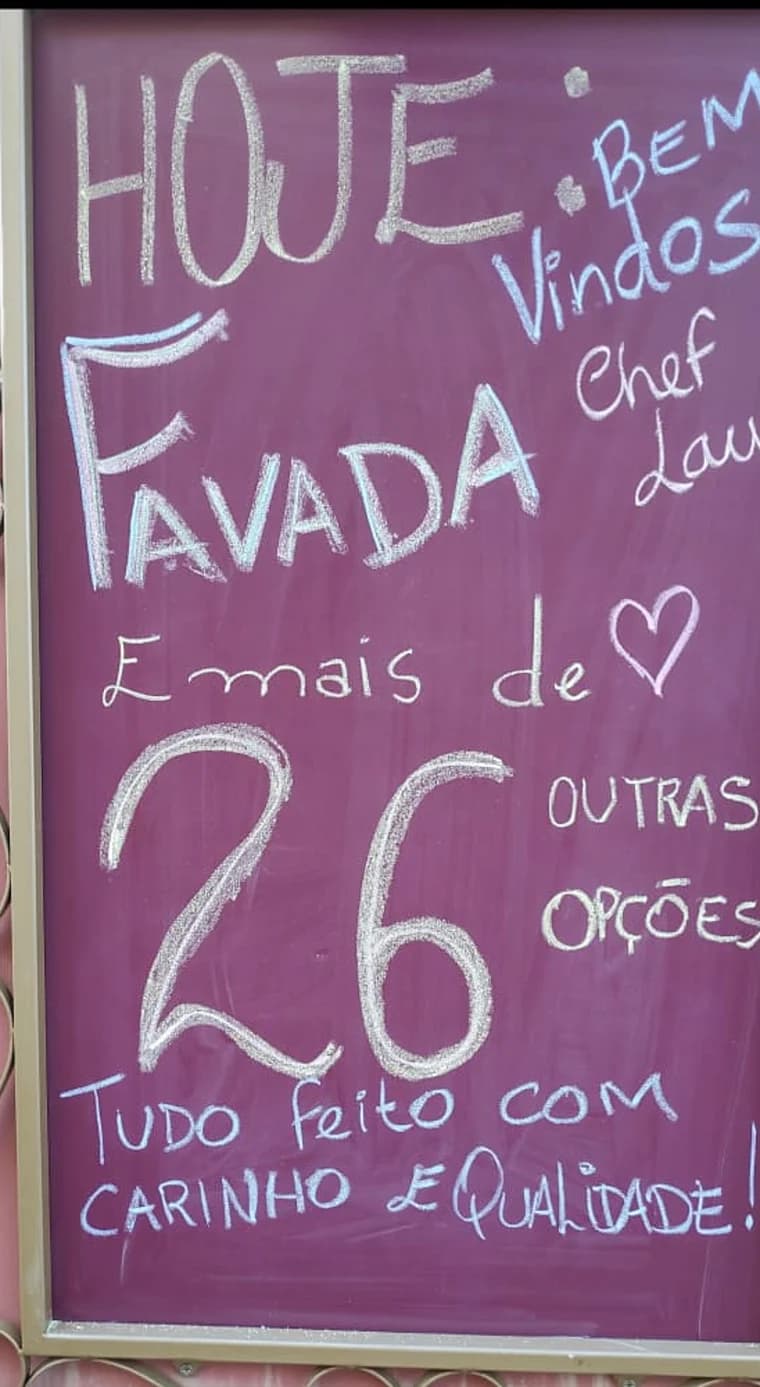 HOJE:
BEM
Vindos
Chef
Lau
FAVADA
E mais de
26 OUTRAS
OPÇÕES
TUDO feito com
CARINHO E QUALIDADE!